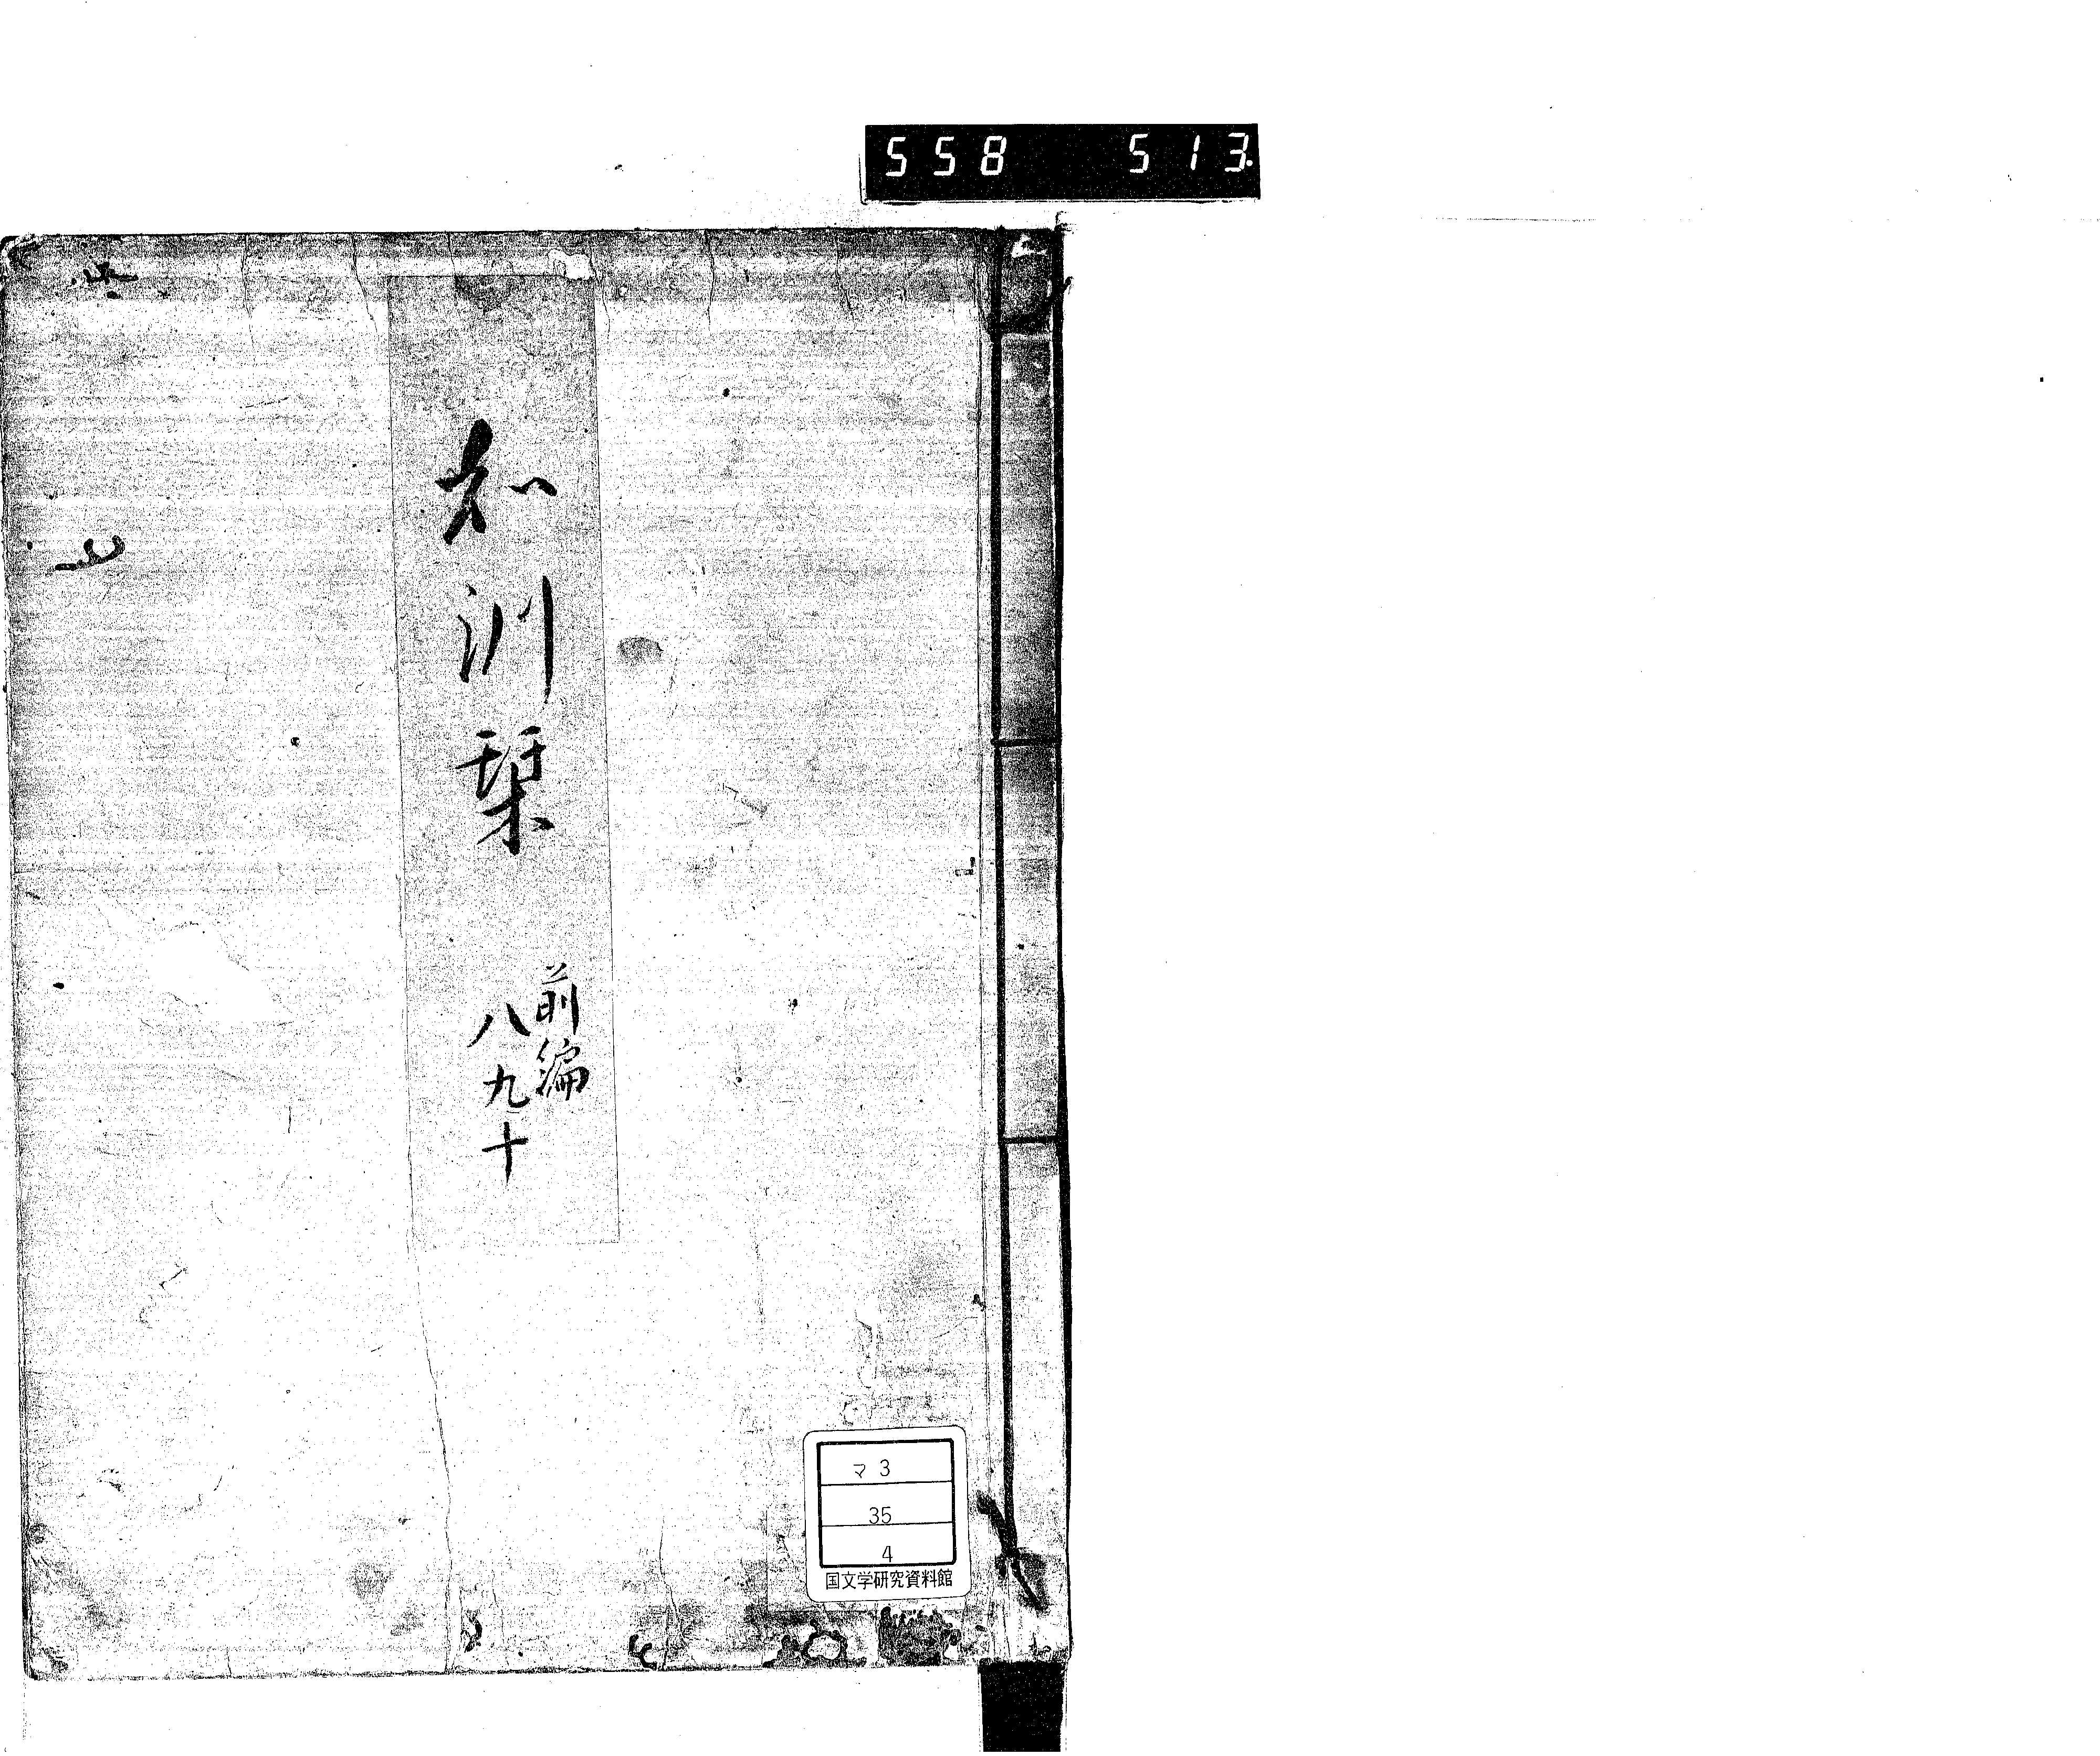 558 513.
和訓栞
前編
八九十
マ3
35
4
国文学研究資料館